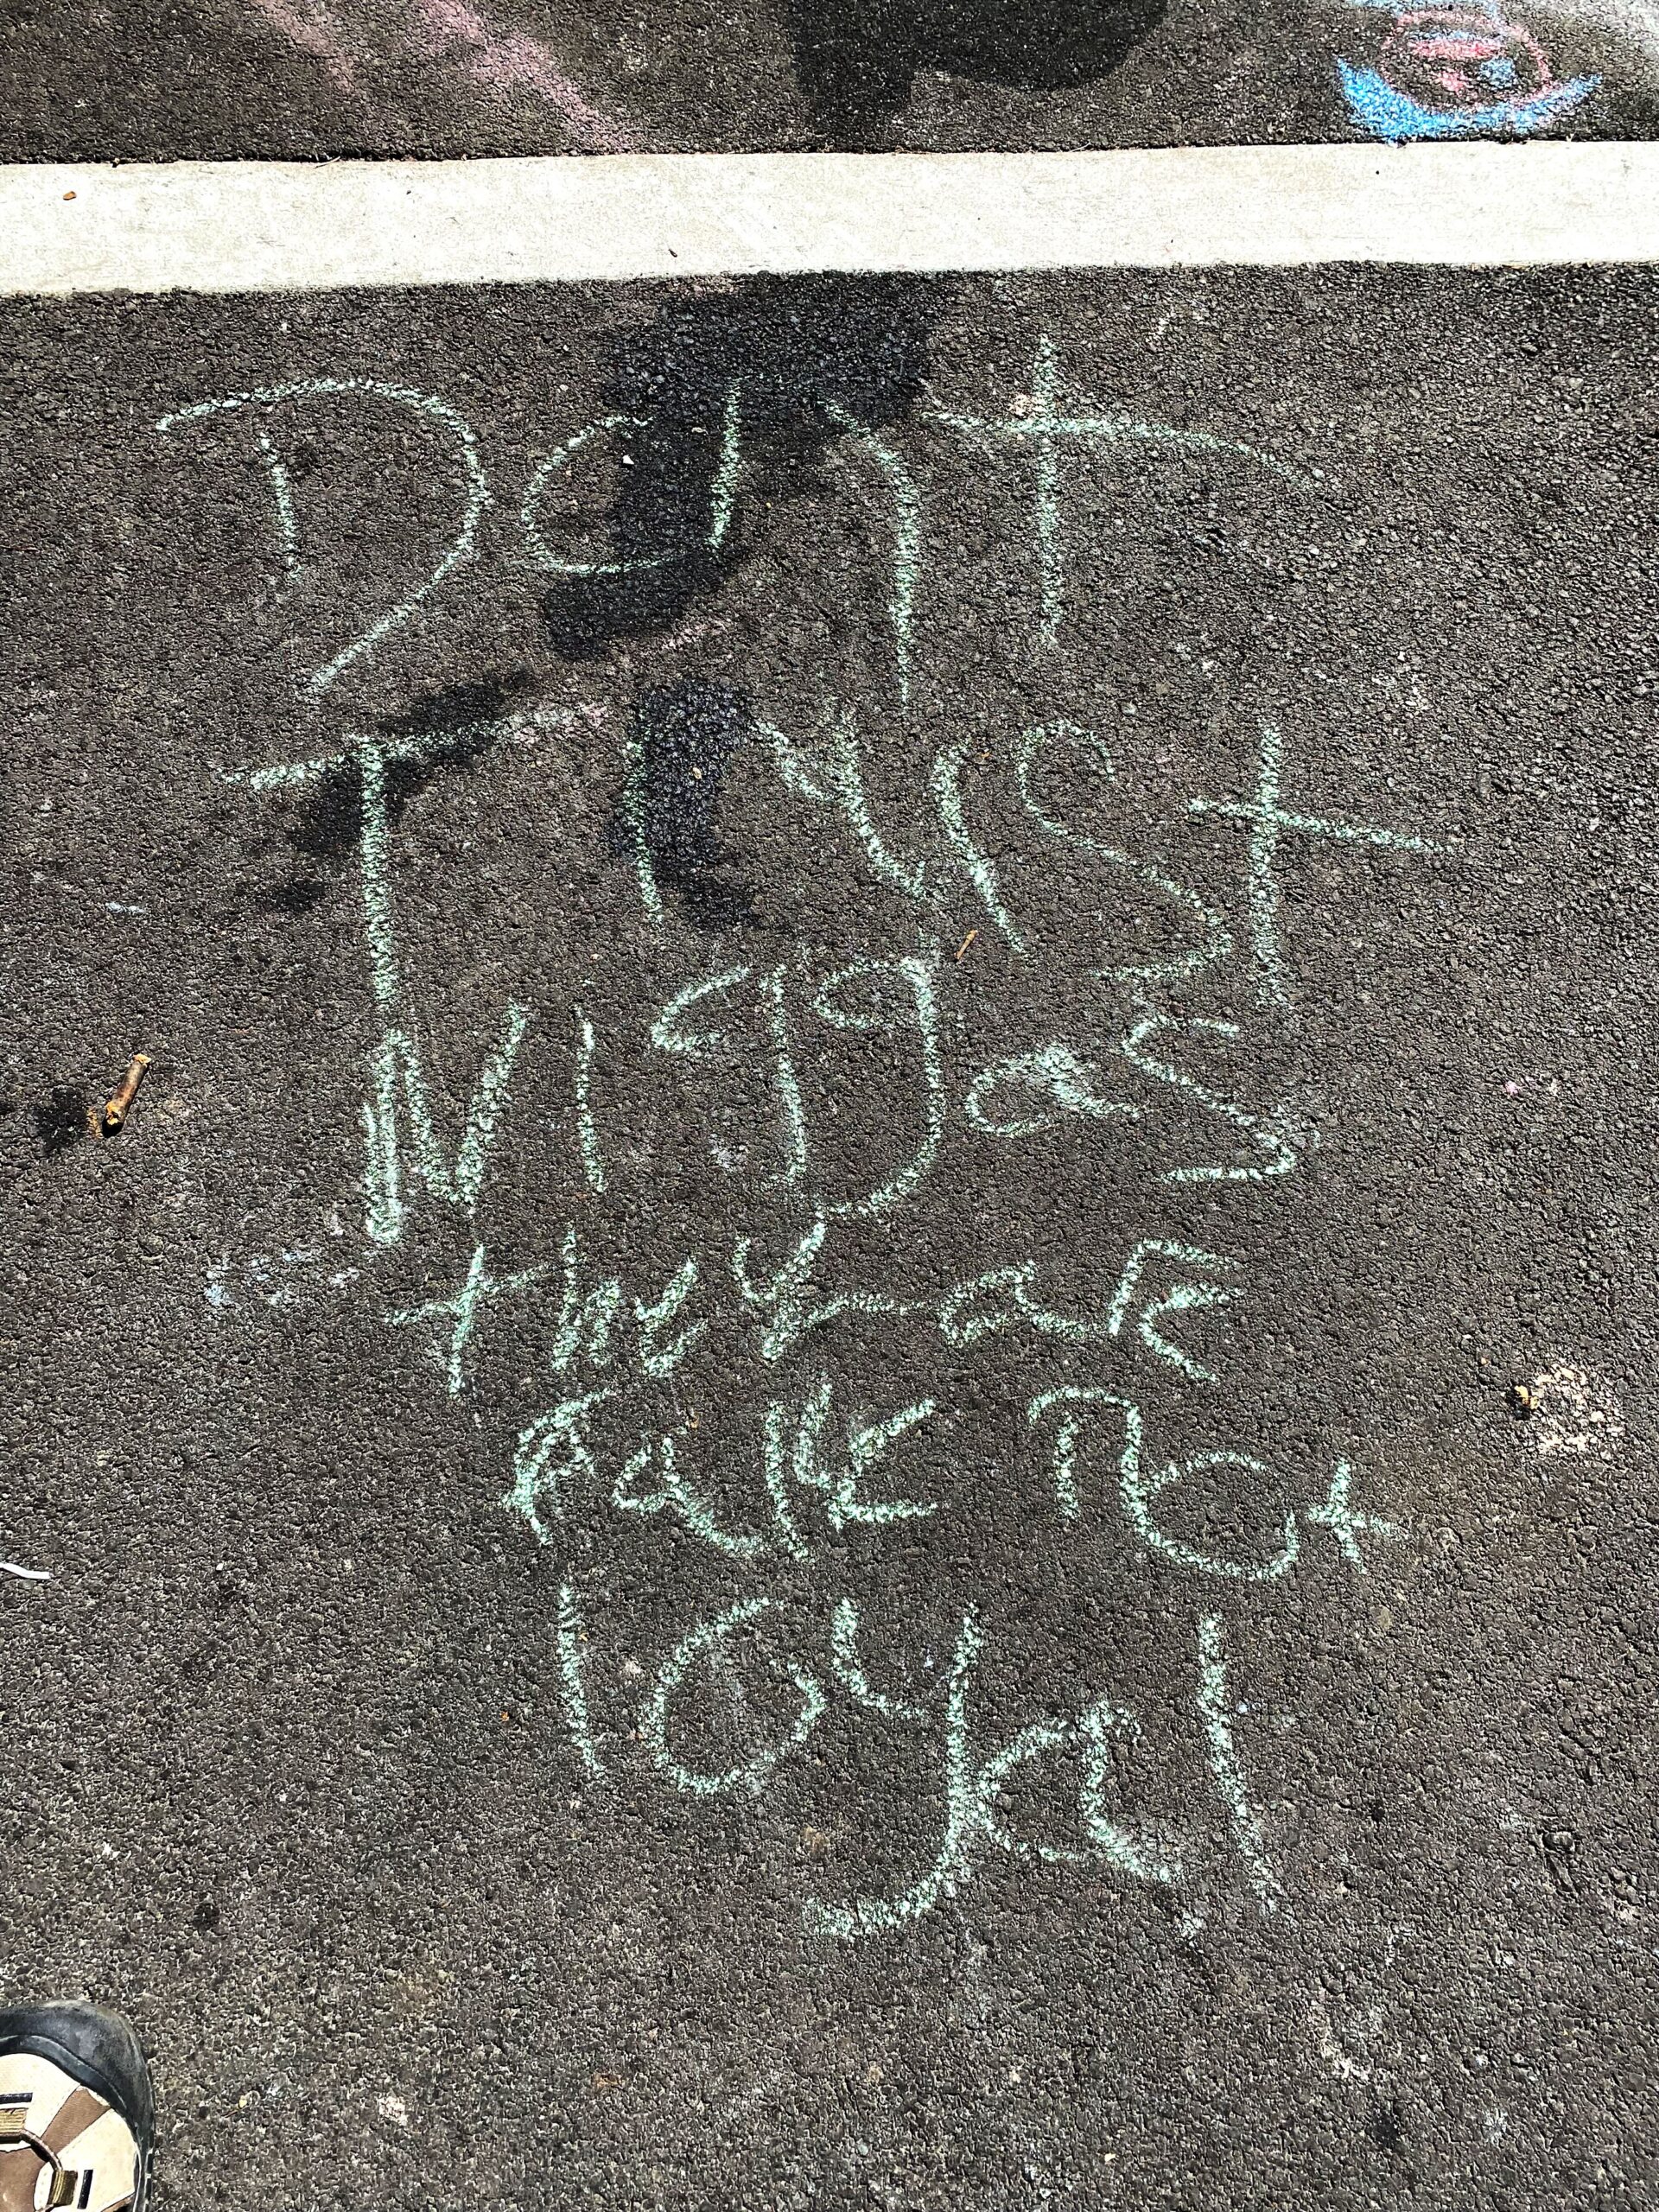 Dont
Trust
Niggas
they are
Fake not
loyal